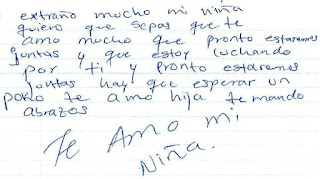 extraño mucho mi niña
quiero que sepas que te
amo mucho que pronto estaremos
juntas y que estoy luchando
por ti y pronto estaremos
juntas hay que esperar un
poko te amo hija te mando
abrazos
Te Amo mi
Niña.